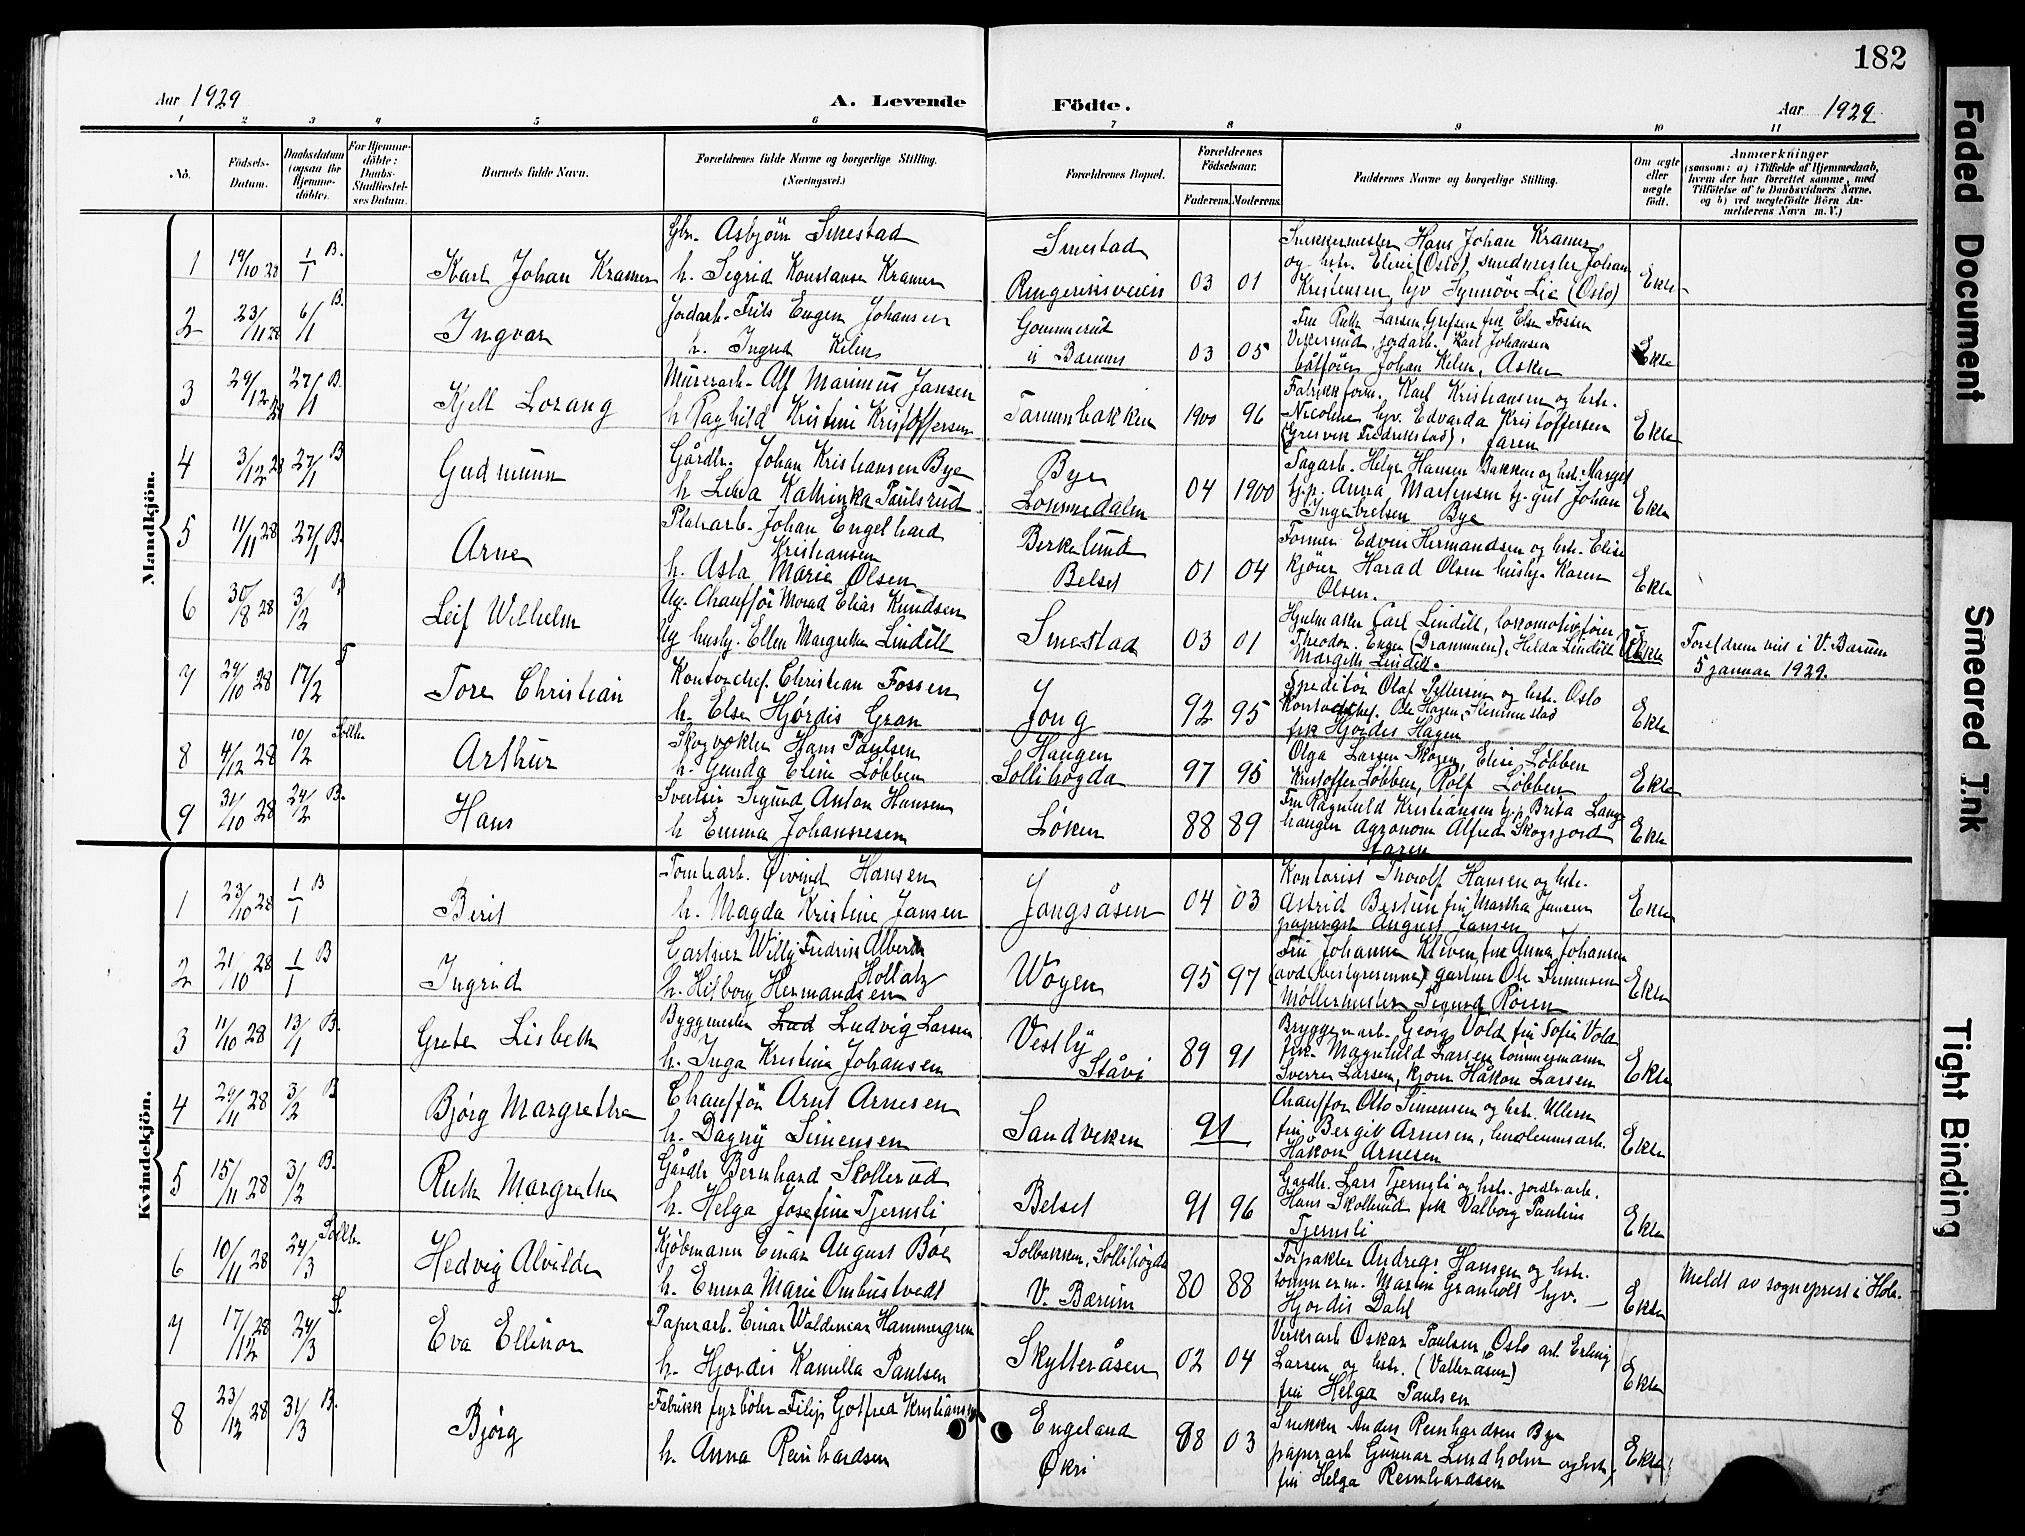 182
Aar 1929
A. Levende
Födte.
Aar 1929
1 2 3 4 5 6 7 8 9 10 11
No.
Födsels-
Datum.
Daabsdatum
(ogsaa for
Hjemme-
döbte).
For Hjemme-
döbte:
Daabs-
Stadfæstel-
ses Datum.
Barnets fulde Navn.
Forældrenes fulde Navne og borgerlige Stilling.
(Næringsvei.)
Forældrenes Bopæl.
Forældrenes
Födselsaar.
Faderens. Moderens.
Faddernes Navne og borgerlige Stilling.
Om ægte
eller
uægte
födt.
Anmærkninger
(saasom: a) i Tilfælde af Hjemmedaab,
hvem der har forrettet samme, med
Tilföielse af to Daabsvidners Navne,
og b) ved uægtefödte Börn An-
melderens Navn m. V.)
Mandkjön.
1 19/10 28 1/1 B.
Karl Johan Kramer
Gbr. Asbjörn Smestad
h. Sigrid Konstanse Kramer
Smestad
Ringeriksveien
03 01
Snekkermester Hans Johan Kramer
og hstr. Eline (Oslo) smedmester Johan
Kristensen, hjv Synnöve Lie (Oslo)
Ekte
2 23/11 28 6/1 B.
Ingvar
Jordarb. Frits Eugen Johansen
h. Ingrid Kilen
Gommerud
i Bærums
03 05
Fru Ruth Larsen Grefsen frk Else Fossen
jordarb. Karl Johansen
båtförer Johan Kilen, Asker
Ekte
3 29/12 28 27/1 B.
Kjell Lorang
Murerarb. Alf Marinius Jansen
h Ragnhild Kristine Kristoffersen
Tanumbakken
1900 96
Fabrikkform. Karl Kristiansen og hstr.
Nicoline hjv. Edvarda Kristoffersen
(Gresvik Fredrikstad). faren
Ekte
4 3/12 28 27/1 B
Gudmunn
Gårdbr. Johan Kristiansen Bye
h Lilla Kathinka Paulsrud
Bye
Lommedalen
04 1900
Sagarb. Helge Hansen Bakken og hst. Margit
hj.p. Anna Martinsen hj. gut Johan
Ingebretsen Bye
Ekte
5 11/11 28 27/1 B.
Arne
Platearb. Johan Engelhard
Kristiansen
h. Asta Marie Olsen
Birkelund
Belset
01 04
Former Edvin Hermandsen og hstr. Elise
kjörer Harad Olsen hushj. Karen
Olsen.
Ekte
6 30/8 28 3/2 B
Leif Wilhelm
Ug. Chaufför Morad Elias Knudsen
Ug hushj. Ellen Margrethe Lindell
Smestad
03 01
Hjulmaker Carl Lindell, lokomotivförer
Theodor Enger (Drammen), Hilda Lindell
Margith Lindell.
Ekte
Foreldrene viet i V. Bærum
5 januar 1929.
7 29/10 28 17/2 T
Tore Christian
Kontorchef. Christian Fossen
h. Else Hjørdis Gran
Jong
92 95
Speditör Olaf Pettersen og hstr. Oslo
Kontorchef. Ole Hagen, Slemmestad
frk Hjördis Hagen
Ekte
8 4/12 28 10/2 Sollh.
Arthur
Skogvokter Hans Paulsen
h. Gunda Eline Løbben
Haugen
Sollihögda
97 95
Olga Larsen Skogen, Elise Løbben
Kristoffer Løbben, Rolf Løbben
Ekte
9 31/10 28 24/2 B.
Hans
Sveiser Sigurd Anton Hansen
h Emma Johannesen
Løken
88 89
Fru Ragnhild Kristiansen hjp Brita Lang-
haugen agronom Alfred Skogsjord
faren
Ekte
Kvindekjön.
1 23/10 28 1/1 B
Berit
Tomtearb. Øivind Hansen
h. Magda Kristine Jansen
Jongsåsen
04 03
Kontorist Thorolf Hansen og hstr.
Astrid Bestum fru Martha Jansen
papirarb August Jansen
Ekte
2 21/10 28 1/1 B
Ingrid
Gartner Willy Fredrik Albert
Hollatz
h. Hilborg Hermandsen
Wøyen
95 97
Fru Johanne Kleven, frk Anna Johansen
(avd. bestyrerinne) gartner Ole Simensen
Møllermester Sigurd Rören
Ekte
3 11/10 28 13/1 B.
Grete Lisbeth
Byggmester Lud Ludvig Larsen
h. Inga Kristine Johansen
Vestly
Ståvi
89 91
Bryggeriarb. Georg Vold fru Sofie Vold
frk. Magnhild Larsen tommermann
Sverre Larsen, kjörer Håkon Larsen
Ekte
4 29/11 28 3/2 B
Bjørg Margrethe
Chaufför Arnt Arnesen
h. Dagny Simensen
Sandviken
91
Chaufför Otto Simensen og hstr. Ullern
fru Bergit Arnesen, linoleumsarb.
Håkon Arnesen
Ekte
5 15/11 28 3/2 B.
Ruth Margrethe
Gårdbr Bernhard Skollerud
h. Helga Josefine Tjernsli
Belset
91 96
Gardbr. Lars Tjernsli og hstr. jordbr.arb.
Hans Skollerud frk Valborg Pauline
Tjernsli
Ekte
6 10/11 28 24/3 Sollh.
Hedvig Alvilde
Kjöbmann Einar August Bøe
h. Emma Marie Ombustvedt
Solbakken, Sollihögda
V. Bærum
80 88
Forpakter Andreas Hansen og hstr.
tømmerm. Martin Granholt hjv. —
Hjördis Dahl
Ekte
Meldt av sogneprest i Hole.
7 17/12 28 24/3 S.
Eva Ellinor
Papirarb. Einar Waldemar Hammergren
h. Hjördis Kamilla Paulsen
Skytteråsen
02 04
Verksarb Oskar Paulsen, Oslo arb. Erling
Larsen og hstr. (Valleråsen)
fru Helga Paulsen
Ekte
8 23/12 28 31/3 B.
Bjørg
Fabrikk fyrböter Filip Gotfred Kristiansen
h. Anna Reinhardsen
Engeland
Økri
98 03
Snekker Anders Reinhardsen Bye
papirarb Gunnar Lindholm og hstr
fru Helga Reinhardsen
Ekte
Faded Document
Smeared Ink
Tight Binding